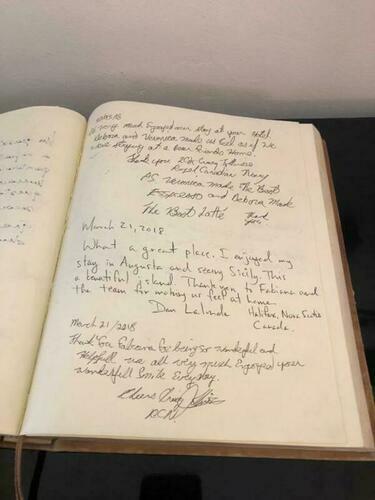 very much Enjoyed our stay at your hotel.
Debora and Veronica made us feel as if we
were staying at a Dear Friends Home.
Thank you
Royal Canadian Navy
PS Veronica made The Best
Espresso and Debora Made
The Best Latté
Thank you.
March 21, 2018
What a great place. I enjoyed my
stay in Augusta and seeing Sicily. This
a beautiful island. Thank you, to Fabiana and
the team for making us feel at home.
Dan Halifax, Nova Scotia
Canada.
March 21/2018
Thank You Fabiana for being so wonderful and
Helpfull we all very much Enjoyed your
wonderfull Smile Everyday.
Cheers Craig
RCN.